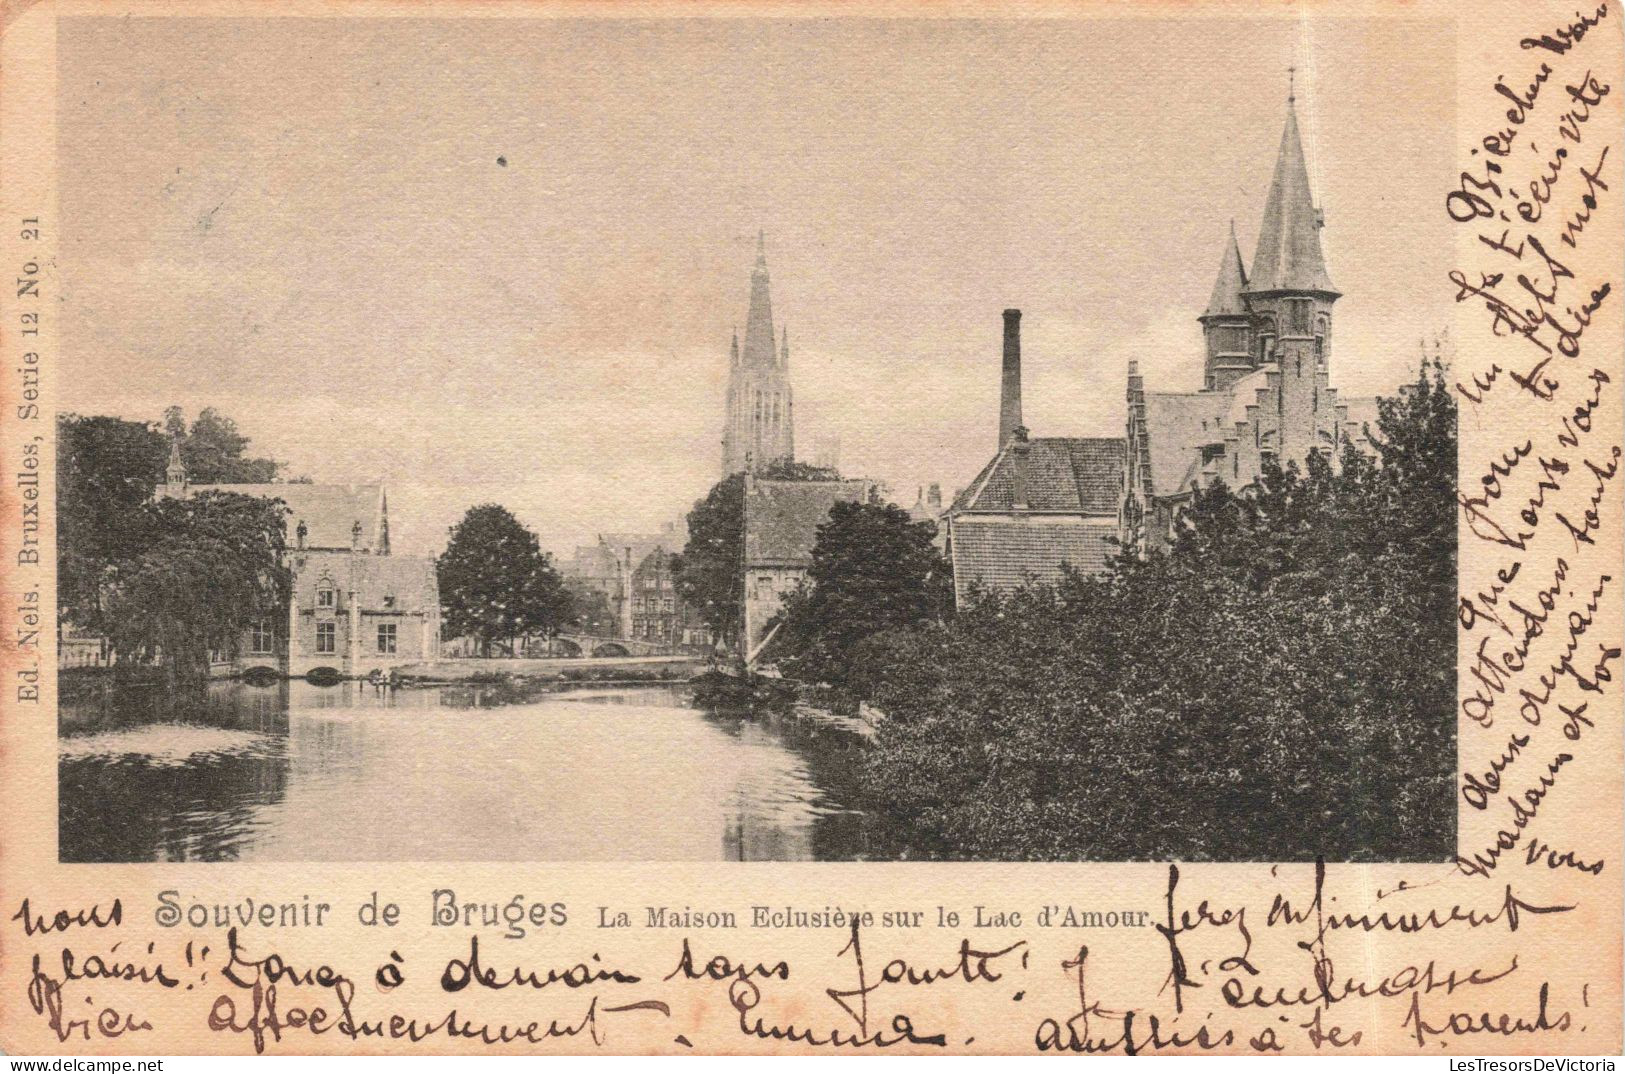 Ed. Nels. Bruxelles, Serie 12 No. 21
Bien chère Marie
Je t'écris vite
un petit mot
pour te dire
que nous vous
attendons toutes
deux demain
madame et toi
vous
Souvenir de Bruges La Maison Eclusière sur le Lac d'Amour.
nous ferez infiniment
plaisir!! Donc à demain sans faute! Je t'embrasse
bien affectueusement. Emma. amitiés à tes parents!
LesTresorsDeVictoria